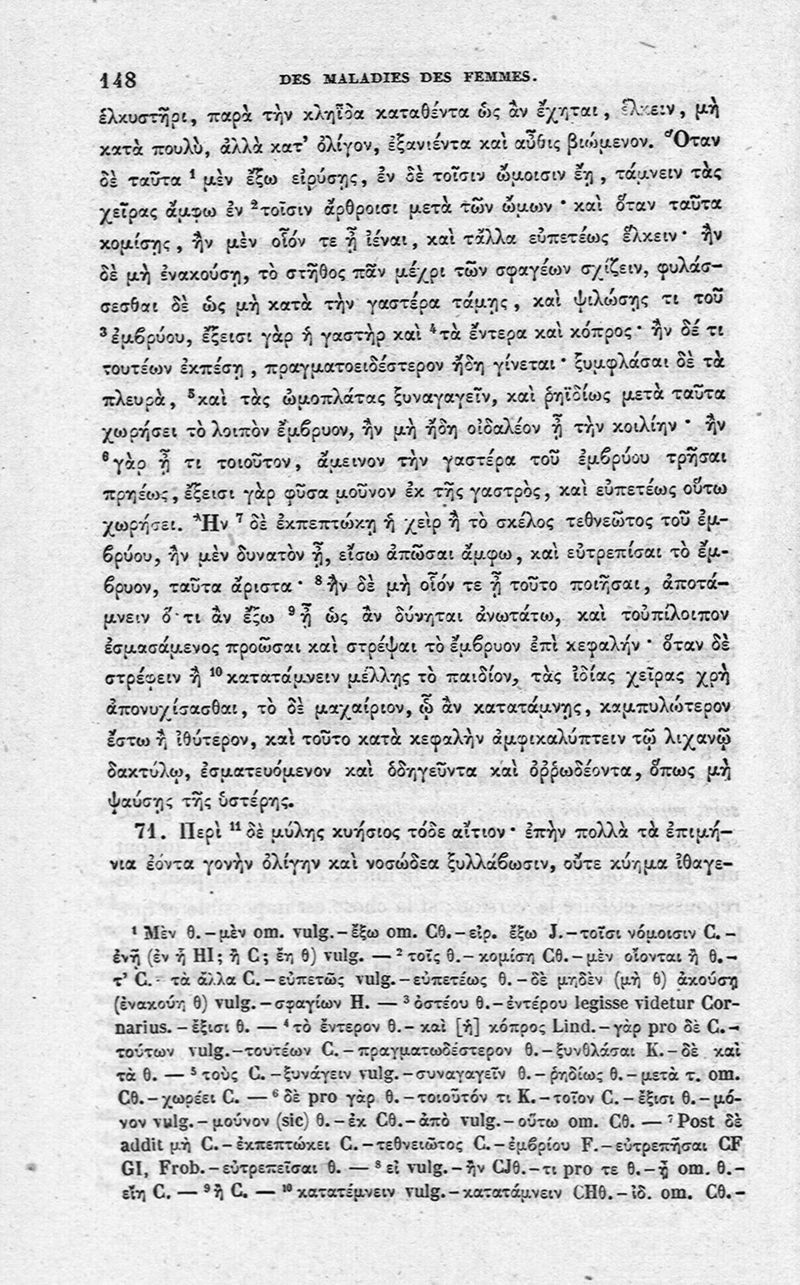 148 DES MALADIES DES FEMMES.
ἑλκυστῆρι, παρὰ τὴν κληῖδα καταθέντα ὡς ἂν ἔχηται, ἕλκειν, μὴ
κατὰ πουλὺ, ἀλλὰ κατ’ ὀλίγον, ἐξανιέντα καὶ αὖθις βιώμενον. Ὅταν
δὲ ταῦτα ¹ μὲν ἔξω εἰρύσῃς, ἐν δὲ τοῖσιν ὤμοισιν ἔῃ, τάμνειν τὰς
χεῖρας ἄμφω ἐν ² τοῖσιν ἄρθροισι μετὰ τῶν ὤμων · καὶ ὅταν ταῦτα
κομίσῃς, ἢν μὲν οἷόν τε ᾖ ἰέναι, καὶ τἄλλα εὐπετέως ἕλκειν · ἢν
δὲ μὴ ἐνακούσῃ, τὸ στῆθος πᾶν μέχρι τῶν σφαγέων σχίζειν, φυλάσ-
σεσθαι δὲ ὡς μὴ κατὰ τὴν γαστέρα τάμῃς, καὶ ψιλώσῃς τι τοῦ
³ ἐμϐρύου, ἔξεισι γὰρ ἡ γαστὴρ καὶ ⁴ τὰ ἔντερα καὶ κόπρος · ἢν δέ τι
τουτέων ἐκπέσῃ, πραγματοειδέστερον ἤδη γίνεται · ξυμφλάσαι δὲ τὰ
πλευρὰ, ⁵ καὶ τὰς ὠμοπλάτας ξυναγαγεῖν, καὶ ῥηϊδίως μετὰ ταῦτα
χωρήσει τὸ λοιπὸν ἔμϐρυον, ἢν μὴ ἤδη οἰδαλέον ᾖ τὴν κοιλίην · ἢν
⁶ γὰρ ᾖ τι τοιοῦτον, ἄμεινον τὴν γαστέρα τοῦ ἐμϐρύου τρῆσαι
πρηέως, ἔξεισι γὰρ φῦσα μοῦνον ἐκ τῆς γαστρὸς, καὶ εὐπετέως οὕτω
χωρήσει. Ἢν ⁷ δὲ ἐκπεπτώκῃ ἡ χεὶρ ἢ τὸ σκέλος τεθνεῶτος τοῦ ἐμ-
ϐρύου, ἢν μὲν δυνατὸν ᾖ, εἴσω ἀπῶσαι ἄμφω, καὶ εὐτρεπίσαι τὸ ἔμ-
ϐρυον, ταῦτα ἄριστα · ⁸ ἢν δὲ μὴ οἷόν τε ᾖ τοῦτο ποιῆσαι, ἀποτά-
μνειν ὅ τι ἂν ἔξω ⁹ ᾖ ὡς ἂν δύνηται ἀνωτάτω, καὶ τοὐπίλοιπον
ἐσμασάμενος προῶσαι καὶ στρέψαι τὸ ἔμϐρυον ἐπὶ κεφαλήν · ὅταν δὲ
στρέφειν ἢ ¹⁰ κατατάμνειν μέλλῃς τὸ παιδίον, τὰς ἰδίας χεῖρας χρὴ
ἀπονυχίσασθαι, τὸ δὲ μαχαίριον, ᾧ ἂν κατατάμνῃς, καμπυλώτερον
ἔστω ἢ ἰθύτερον, καὶ τοῦτο κατὰ κεφαλὴν ἀμφικαλύπτειν τῷ λιχανῷ
δακτύλῳ, ἐσματευόμενον καὶ ὁδηγεῦντα καὶ ὀῤῥωδέοντα, ὅπως μὴ
ψαύσῃς τῆς ὑστέρης.
71. Περὶ ¹¹ δὲ μύλης κυήσιος τόδε αἴτιον · ἐπὴν πολλὰ τὰ ἐπιμή-
νια ἐόντα γονὴν ὀλίγην καὶ νοσώδεα ξυλλάϐωσιν, οὔτε κύημα ἰθαγε-
¹ Μὲν θ. – μὲν om. vulg. – ἔξω om. Cθ. – εἰρ. ἔξω J. – τοῖσι νόμοισιν C. –
ἐνῇ (ἐν ᾖ HI; ἢ C; ἔῃ θ) vulg. — ² τοῖς θ. – κομίσῃ Cθ. – μὲν οἴονται ἢ θ. –
τ’ C. – τὰ ἄλλα C. – εὐπετῶς vulg. – εὐπετέως θ. – δὲ μηδὲν (μὴ θ) ἀκούσῃ
(ἐνακούῃ θ) vulg. – σφαγίων H. — ³ ὀστέου θ. – ἐντέρου legisse videtur Cor-
narius. – ἔξισι θ. — ⁴ τὸ ἔντερον θ. – καὶ [ἡ] κόπρος Lind. – γὰρ pro δὲ C. –
τούτων vulg. – τουτέων C. – πραγματωδέστερον θ. – ξυνθλάσαι K. – δὲ καὶ
τὰ θ. — ⁵ τοὺς C. – ξυνάγειν vulg. – συναγαγεῖν θ. – ῥηδίως θ. – μετὰ τ. om.
Cθ. – χωρέει C. — ⁶ δὲ pro γὰρ θ. – τοιοῦτόν τι K. – τοῖον C. – ἔξισι θ. – μό-
νον vulg. – μούνον (sic) θ. – ἐκ Cθ. – ἀπὸ vulg. – οὕτω om. Cθ. — ⁷ Post δὲ
addit μὴ C. – ἐκπεπτώκει C. – τεθνειῶτος C. – ἐμϐρίου F. – εὐτρεπῆσαι CF
GI, Frob. – εὐτρεπεῖσαι θ. — ⁸ εἰ vulg. – ἢν CJθ. – τι pro τε θ. – ᾖ om. θ. –
εἴη C. — ⁹ ἢ C. — ¹⁰ κατατέμνειν vulg. – κατατάμνειν CHθ. – ἰδ. om. Cθ. –